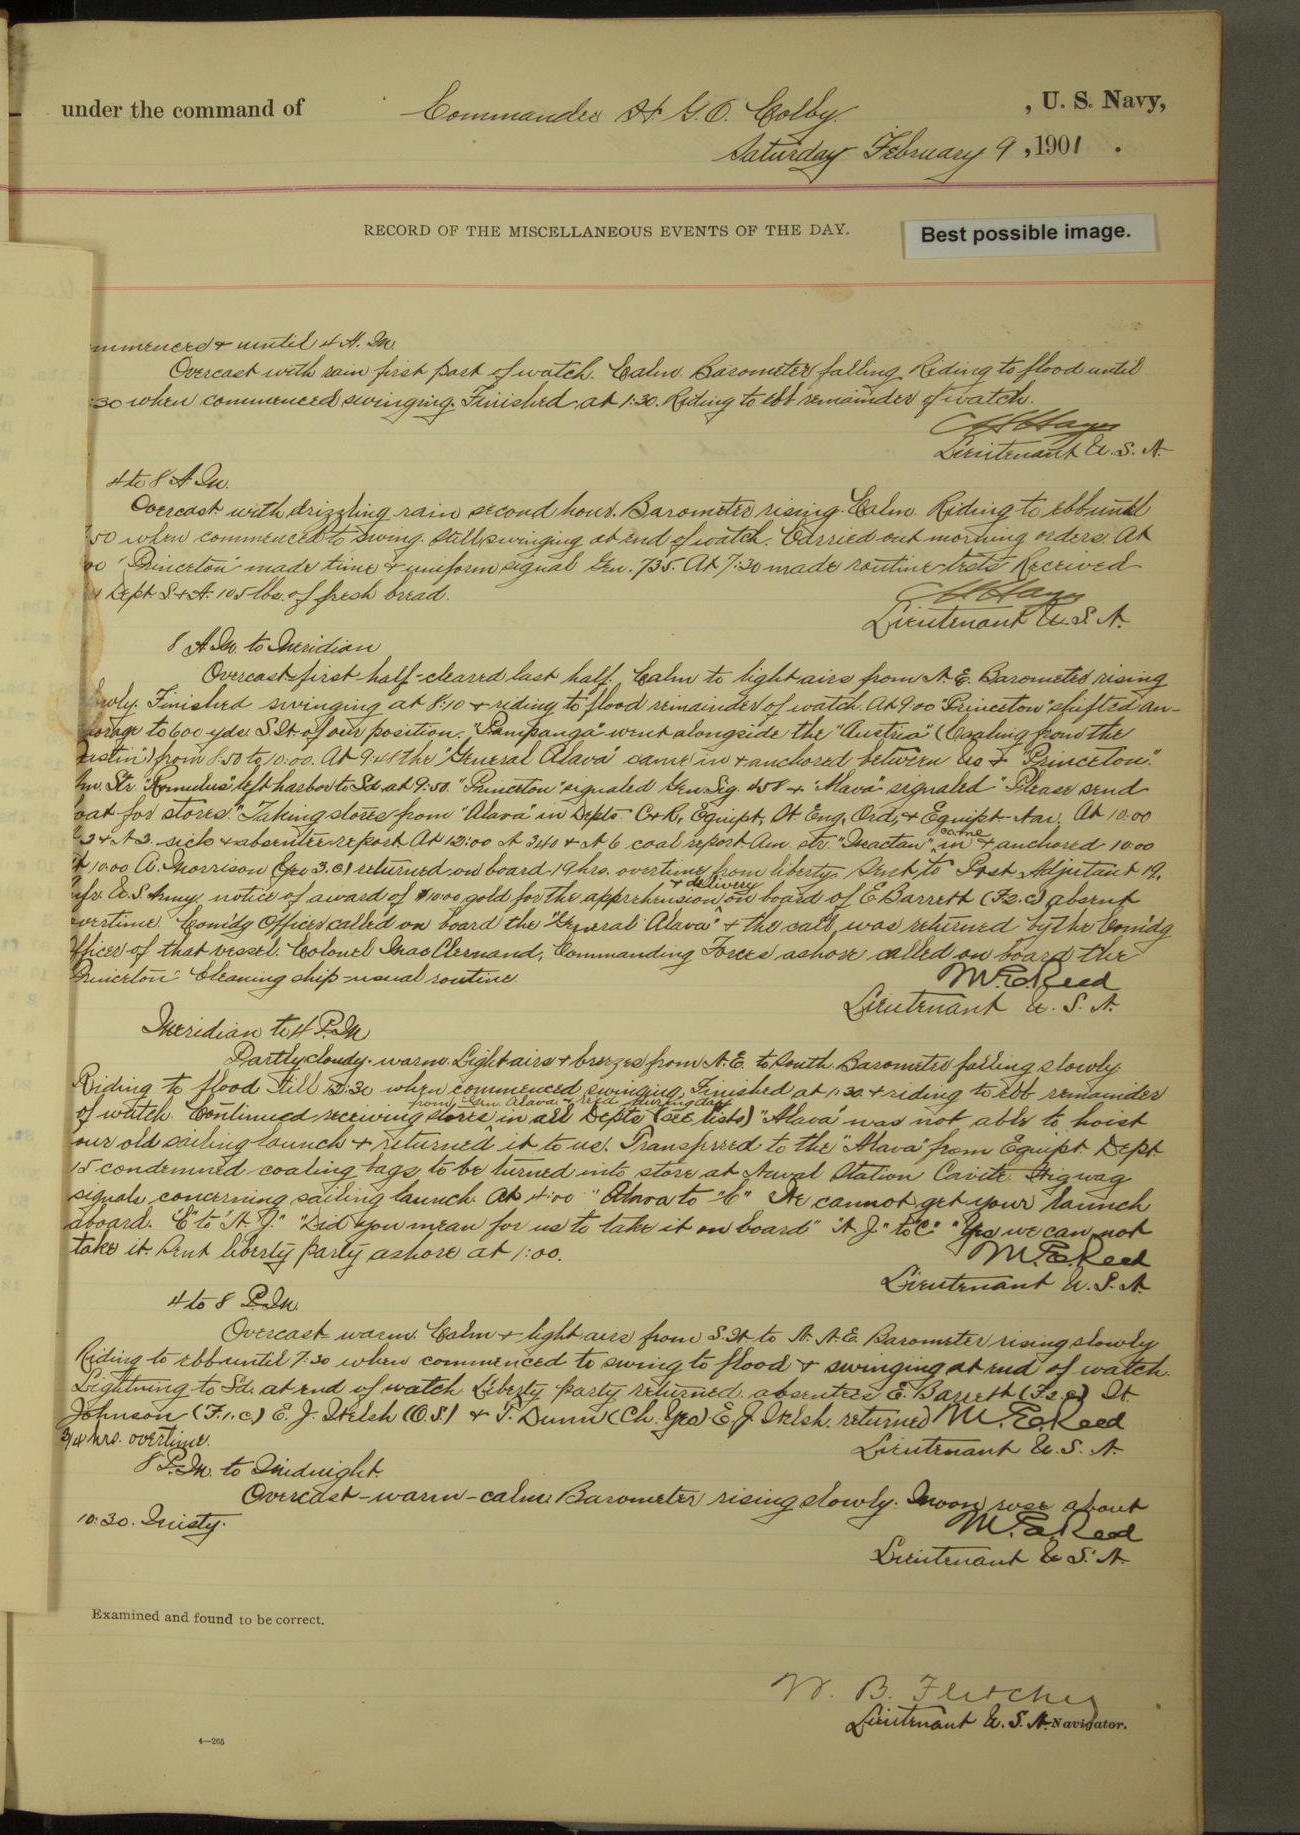 under the command of Commander H. G. O. Colby. , U. S. Navy,
Saturday February 9 , 1901 .
RECORD OF THE MISCELLANEOUS EVENTS OF THE DAY.
Best possible image.
mmenced & until 4 A. M.
Overcast with rain first part of watch. Calm. Barometer falling. Riding to flood until
:30 when commenced swinging. Finished at 1:30. Riding to ebb remainder of watch.
Lieutenant U. S. N.
4 to 8 A. M.
Overcast with drizzling rain second hour. Barometer rising. Calm. Riding to ebb until
:50 when commenced to swing. Still swinging at end of watch. Carried out morning orders. At
00 "Princeton" made time & uniform signal Gen. 735. At 7:30 made routine tests. Received
Dept. S & A. 105 lbs. of fresh bread.
Lieutenant U. S. N.
8 A. M. to Meridian
Overcast first half - cleared last half. Calm to light airs from N. E. Barometer rising
owly. Finished swinging at 8:10 & riding to flood remainder of watch. At 9:00 "Princeton" shifted an-
horage to 600 yds. S. W. of our position. "Pampanga" went alongside the "Austria" (Coaling from the
ustin") from 8:50 to 10:00. At 9:48 the "General Alava" came in & anchored between us & "Princeton."
m. Str. "Romulus" left harbor to Sd. at 9:50. "Princeton" signaled Gen. Sig. 458 & "Alava" signaled "Please send
oat for stores." Taking stores from "Alava" in Depts. C & R, Equipt, St. Eng, Ord, & Equipt - Nav. At 10:00
& A 3 sick & absentee report. At 12:00 A 340 & A 6 coal report. Am. str. "Mactan" came in & anchored 10:00
t 10:00 A. Morrison returned on board 19 hrs. overtime from liberty. Sent to Post Adjutant 19,
nfr. U. S. Army, notice of award of $10.00 gold for the apprehension & delivery on board of E. Barrett (F. 2. c) absent
overtime. Com'd'g Officer called on board the "General Alava" & the call was returned by the Com'd'g
fficer of that vessel. Colonel MacClernand, Commanding Forces ashore called on board the
Princeton". Cleaning ship - usual routine.
M. E. Reed
Lieutenant U. S. N.
Meridian to 4 P. M.
Partly cloudy - warm. Light airs & breezes from N. E. to South. Barometer falling slowly.
Riding to flood till 12:30 when commenced swinging. Finished at 1:30 & riding to ebb remainder
of watch. Continued receiving stores from Gen. Alava in all Depts (see lists) "Alava" was not able to hoist
our old sailing launch & returned it to us. Transferred to the "Alava" from Equipt. Dept
15 condemned coaling bags to be turned into store at Naval Station Cavite. Wigwag
signals concerning sailing launch. At 4:00 "Alava to "C" We cannot get your launch
aboard. "C" to "A. J." "Did you mean for us to take it on board" "A. J." to "C" "Yes we can not
take it. Sent liberty party ashore at 1:00.
M. E. Reed
Lieutenant U. S. N.
4 to 8 P. M.
Overcast - warm. Calm & light airs from S. W. to N. N. E. Barometer rising slowly
Riding to ebb until 7:30 when commenced to swing to flood & swinging at end of watch.
Lightning to Sd. at end of watch. Liberty party returned. absentees E. Barrett (F. 2. c) W.
Johnson (F. 1. c.) E. J. Welsh (O. S.) & T. Dunn (Ch. Yeo) E. J. Welsh returned
3/4 hrs. overtime.
M. E. Reed
Lieutenant U. S. N.
8 P. M. to Midnight
Overcast - warm - calm. Barometer rising slowly. Moon rose about
10:30. Misty.
M. E. Reed
Lieutenant U. S. N.
Examined and found to be correct.
W. B. Fletcher
Lieutenant U. S. N. Navigator.
4—265